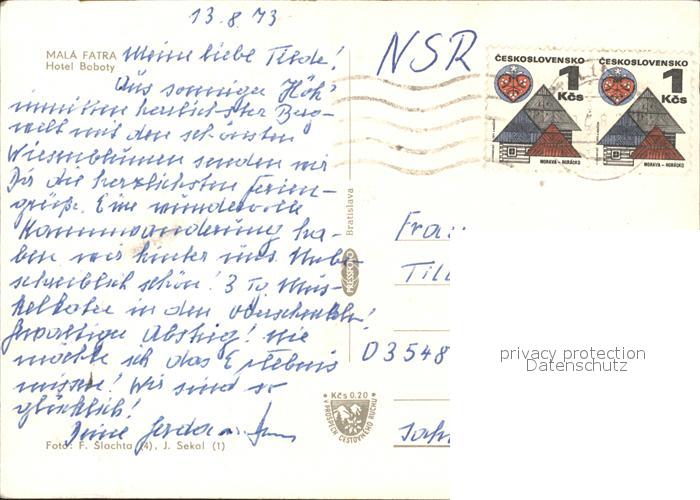 13.8.73
MALÁ FATRA
Hotel Boboty
Meine liebe Tilde!
Aus sonniger Höh'
inmitten herrlichster Berg-
welt mit den schönsten
Wiesenblumen senden wir
Dir die herzlichsten Ferien-
grüße. Eine wundervolle
Kammwanderung ha-
ben wir hinter uns. Unbe-
schreiblich schön! 3 Tg. Mus-
kelkater in den Oberschenkeln!
Gewaltiger Abstieg! Nie
möchte ich das Erlebnis
missen! Wir sind so
glücklich!
Deine Gerda
Foto: F. Šlachta (4), J. Sekal (1)
NSR
ČESKOSLOVENSKO
1
Kčs
MORAVA – HORÁCKO
ČESKOSLOVENSKO
1
Kčs
MORAVA – HORÁCKO
Bratislava
PRESSFOTO
Frau
Till
D 3548
Kčs 0.20
V PROSPĚCH CESTOVNÉHO RUCHU
privacy protection
Datenschutz